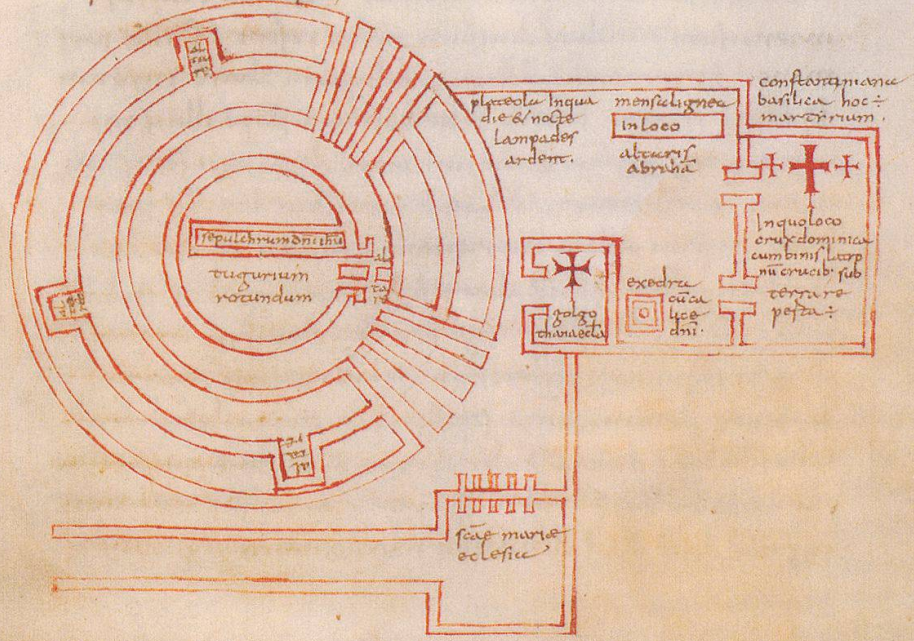 altare
sepulchrum dni ihu
tugurium
rotundum
altare
altare
altare
plateola Inqua
die & nocte
lampades
ardent.
mensa lignea
in loco
altaris
abrahã
constantiniana
basilica hoc ÷
martirium.
Inquo loco
crux dominica
cum binis latro
nũ crucib; sub
terra re
perta ÷
golgo
thana ecla
exedra
cũ ca
lice
dñi.
scãe mariae
eclesia